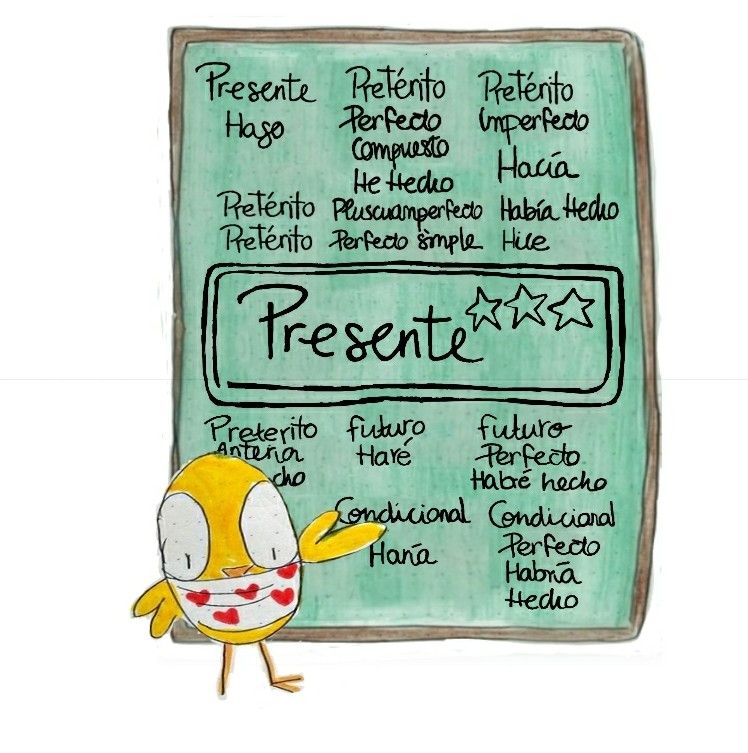 Presente
Hago
Pretérito
Perfecto
Compuesto
He Hecho
Pretérito
Imperfecto
Hacía
Pretérito Pluscuamperfecto Había Hecho
Pretérito Perfecto simple Hice
Presente
Preterito
Anterior
cho
futuro
Haré
futuro
Perfecto
Habré hecho
Condicional
Haría
Condicional
Perfecto
Habría
Hecho